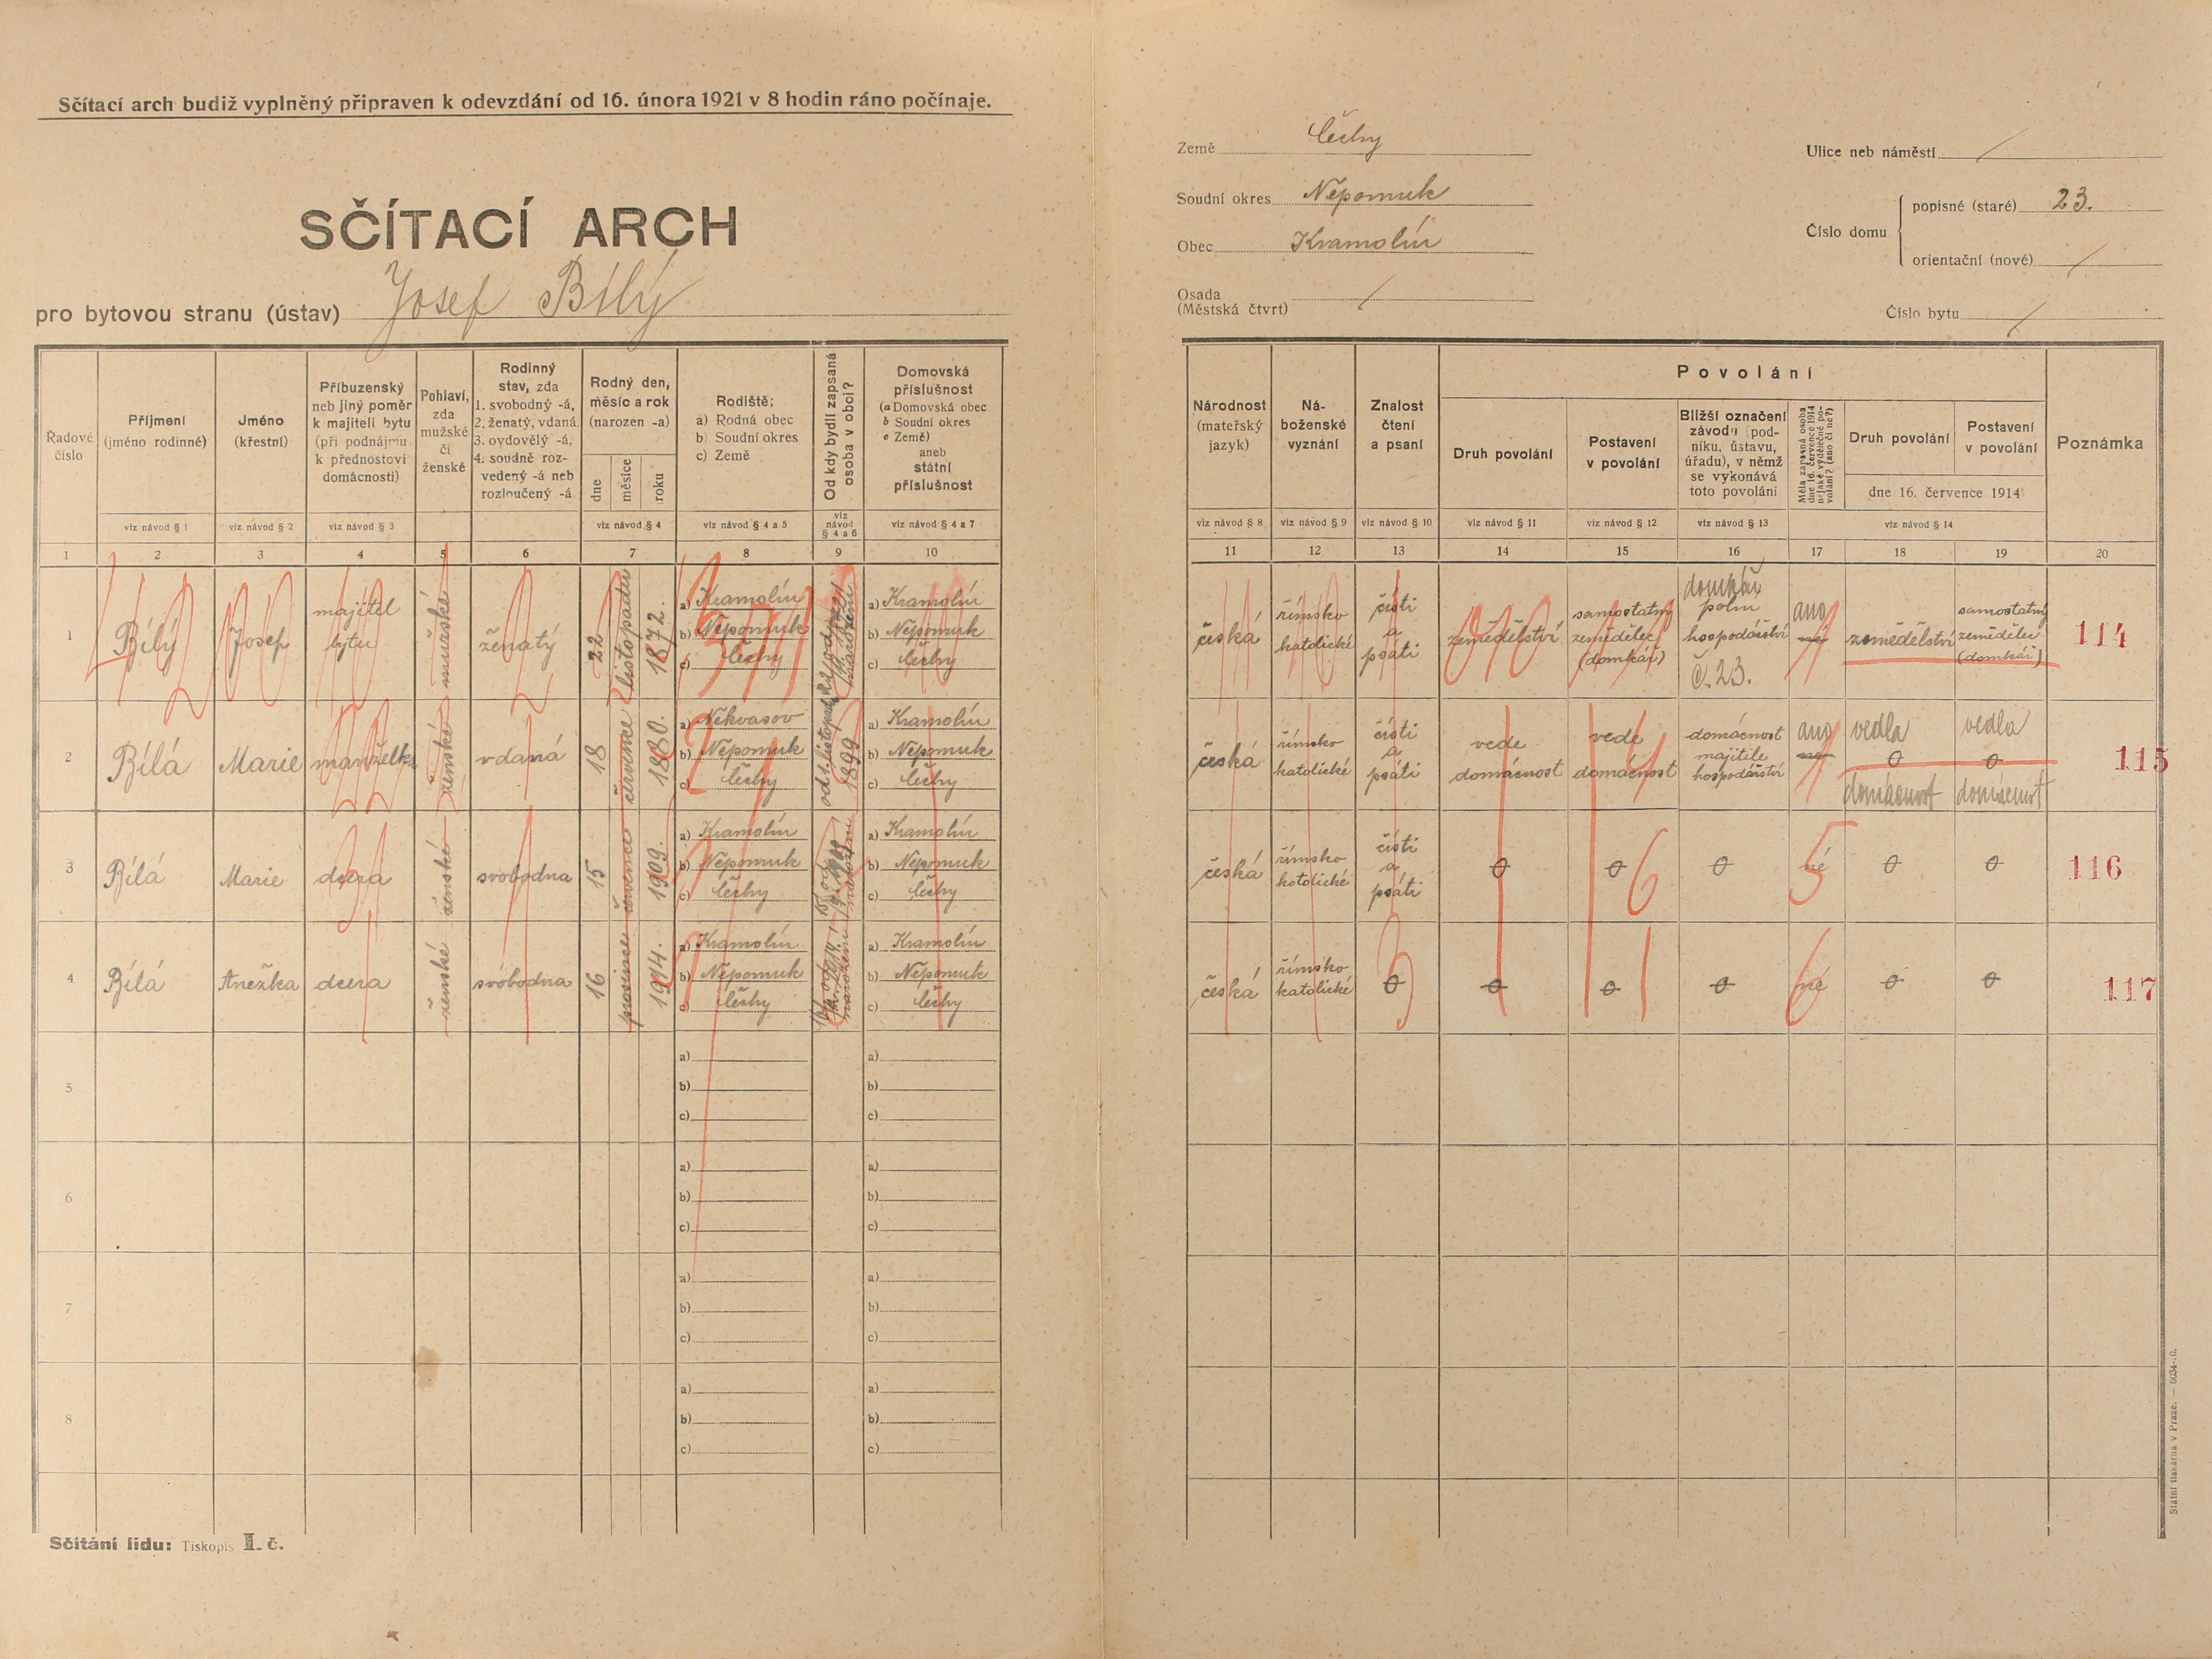 Sčítací arch budiž vyplněný připraven k odevzdání od 16. února 1921 v 8 hodin ráno počínaje.
SČÍTACÍ ARCH
pro bytovou stranu (ústav) Josef Bílý
Země Čechy
Soudní okres Nepomuk
Obec Kramolín
Osada
(Městská čtvrť) /
Ulice neb náměstí /
Číslo domu
popisné (staré) 23.
orientační (nové) /
Číslo bytu /
Řadové číslo
Příjmení (jméno rodinné)
Jméno (křestní)
Příbuzenský neb jiný poměr k majiteli bytu (při podnájmu k přednostovi domácnosti)
Pohlaví, zda mužské či ženské
Rodinný stav, zda 1. svobodný -á, 2. ženatý, vdaná 3. ovdovělý -á, 4. soudně rozvedený -á neb rozloučený -á
Rodný den, měsíc a rok (narozen -a)
dne měsíce roku
Rodiště: a) Rodná obec b) Soudní okres c) Země
Od kdy bydlí zapsaná osoba v obci?
Domovská příslušnost (a Domovská obec b Soudní okres c Země) aneb státní příslušnost
Národnost (mateřský jazyk)
Náboženské vyznání
Znalost čtení a psaní
Povolání
Druh povolání
Postavení v povolání
Bližší označení závodu (podniku, ústavu, úřadu), v němž se vykonává toto povolání
Měla zapsaná osoba dne 16. července 1914 nějaké výdělečné povolání? (ano či ne?)
Druh povolání
Postavení v povolání
dne 16. července 1914
Poznámka
viz návod § 1 viz návod § 2 viz návod § 3 viz návod § 4 viz návod § 4 a 5 viz návod § 4 a 6 viz návod § 4 a 7
viz návod § 8 viz návod § 9 viz návod § 10 viz návod § 11 viz návod § 12 viz návod § 13 viz návod § 14
1 2 3 4 5 6 7 8 9 10 11 12 13 14 15 16 17 18 19 20
1 Bílý Josef majitel bytu mužské ženatý 22 listopadu 1872. a) Kramolín b) Nepomuk c) Čechy
a) Kramolín b) Nepomuk c) Čechy
česká římsko katolické čísti a psáti zemědělství samostatný zemědělec (domkář) domkář polní hospodářství č. 23. ano ne zemědělství samostatný zemědělec (domkář) 114
2 Bílá Marie manželka ženské vdaná 18 července 1880. a) Nekvasov b) Nepomuk c) Čechy
od listopadu 1899
a) Kramolín b) Nepomuk c) Čechy
česká římsko katolické čísti a psáti vede domácnost vede domácnost domácnost majitele hospodářství ano ne vedla 0 domácnost vedla 0 domácnost 115
3 Bílá Marie dcera ženské svobodna 15 července 1909. a) Kramolín b) Nepomuk c) Čechy
a) Kramolín b) Nepomuk c) Čechy
česká římsko katolické čísti a psáti 0 0 0 ne 0 0 116
4 Bílá Anežka dcera ženské svobodna 16 prosince 1914. a) Kramolín b) Nepomuk c) Čechy
a) Kramolín b) Nepomuk c) Čechy
česká římsko katolické 0 0 0 0 ne 0 0 117
5 a) b) c) a) b) c)
6 a) b) c) a) b) c)
7 a) b) c) a) b) c)
8 a) b) c) a) b) c)
Sčítání lidu: Tiskopis I. č.